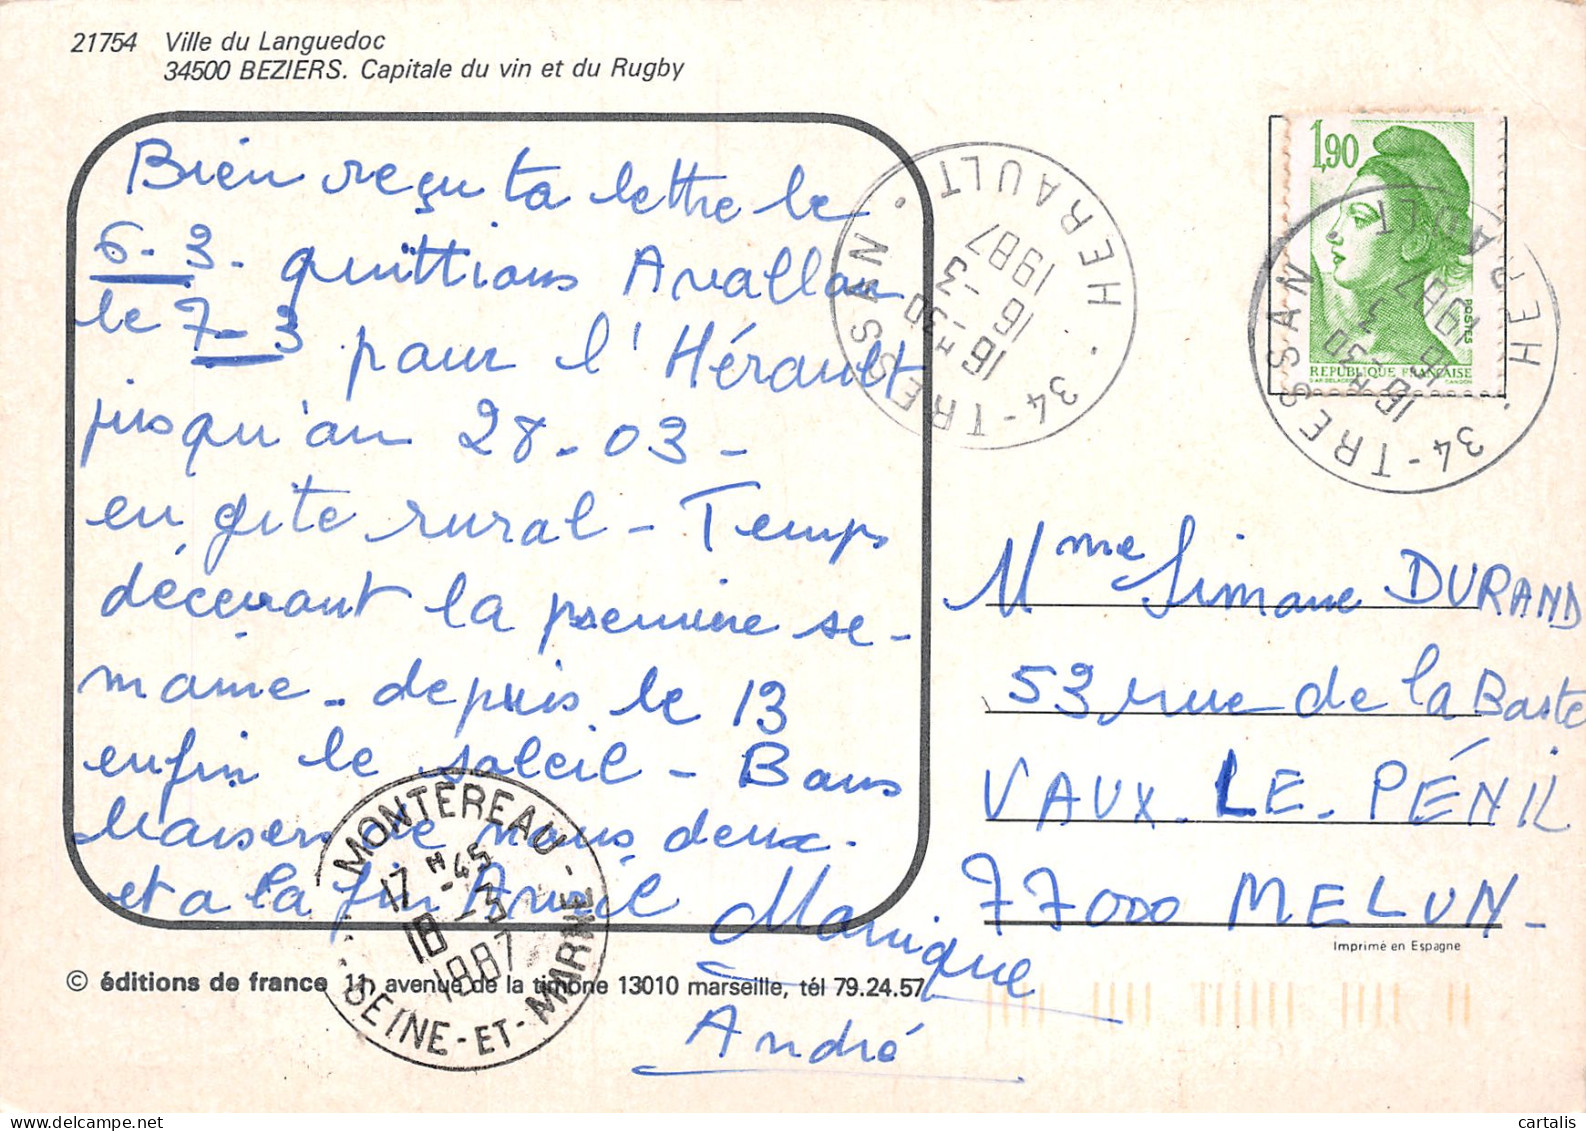 21754 Ville du Languedoc
34500 BEZIERS. Capitale du vin et du Rugby
Bien reçu ta lettre le
6-3- quittions Avallon
le 7-3 pour l'Hérault
jusqu'au 28-03-
en gîte rural - Temps
décevant la première se-
maine - depuis le 13
enfin le soleil - Bons
baisers de nous deux.
et a la fin Avril
Monique
André
© éditions de france 11, avenue de la timone 13010 marseille, tél 79.24.57
MONTEREAU -
17 H 45
18 -3
1987
SEINE-ET-MARNE
34-TRESSAN • HERAULT •
16 H -30
16 -3
1987
1,90
POSTES
REPUBLIQUE FRANÇAISE
34-TRESSAN • HERAULT •
16 H -30
16 -3
1987
Mme Simone DURAND
53 rue de la Baste
VAUX-LE-PÉNIL
77000 MELUN-
Imprimé en Espagne
cartalis